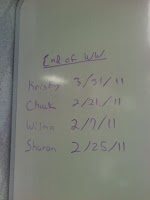 End of WW
Kristy 3/31/11
Chuck 2/21/11
Wilma 2/7/11
Sharon 2/25/11